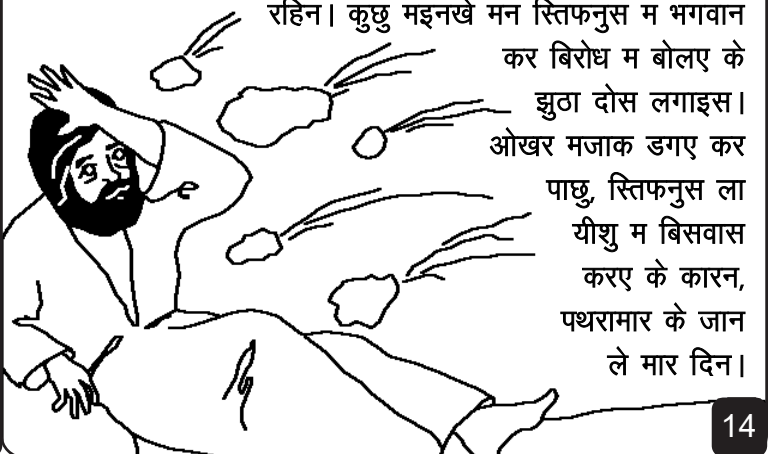 रहिन। कुछु मइनखे मन स्तिफनुस म भगवान
कर बिरोध म बोलए के
झुठा दोस लगाइस।
ओखर मजाक डगए कर
पाछु, स्तिफनुस ला
यीशु म बिसवास
करए के कारन,
पथरामार के जान
ले मार दिन।
14